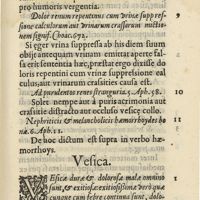 pro humoris vergentia.
Dolor renum repentinus cum vrinæ suppres- 9
sione calculorum aut vrinarum crassarum mictio-
nem signif. Coac. 672.
Si æger vrina suppressa ab his diem suum
obijt a nequam vrinam
erit sententia hæc. fit ergo dixisse do
lorem repentini cum vrinæ suppressione cal
culus, aut vrinarum crassities causa est.
Ad prudentes renes stranguria. 5. Aph. 58. 10
Solet nempe aut à puris acrimonia aut
crassitie distracto aut occluso vesicæ collo.
Nephriticis & melancholicis hæmorrhoydes bo- 11
næ. 6. Aph. 11.
De hoc dictum est supra in verbo hæ
morrhoys.
Vesica.
VEsicæ duræ & dolorosæ malæ omnino 1
sunt, & exitiosæ exitiosissimæ verò quæ
cunque cum febre continua sunt, dolo-